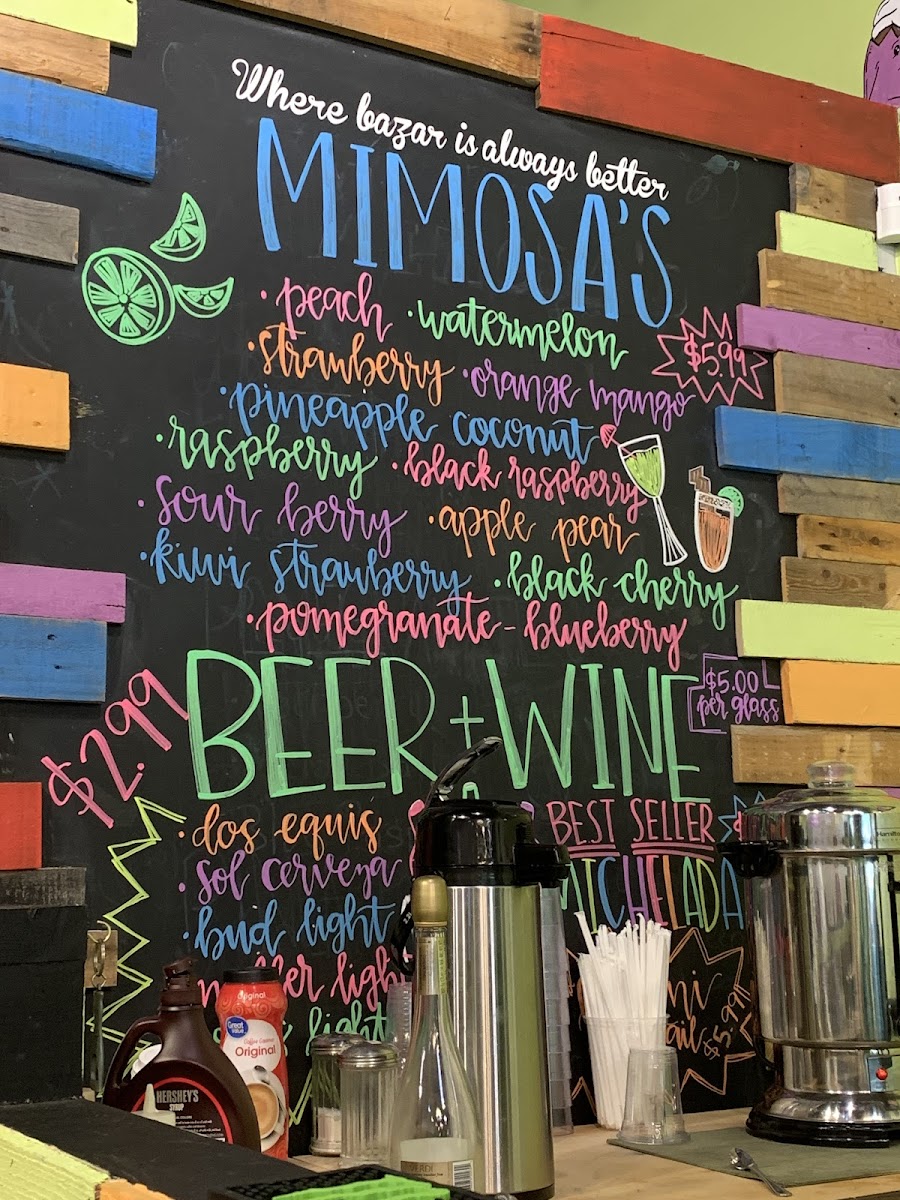 Where bazar is always better
MIMOSA'S
· peach · watermelon
$5.99
· strawberry · orange mango
· pineapple coconut
· raspberry · black raspberry
· sour berry · apple pear
· kiwi strawberry · black cherry
· pomegranate - blueberry
BEER + WINE
$5.00
per glass
$2.99
· dos equis
· sol cerveza
· bud light
light
light
BEST SELLER
MICHELADA
$5.99
HERSHEY'S
SYRUP
Original
Great Value
Original